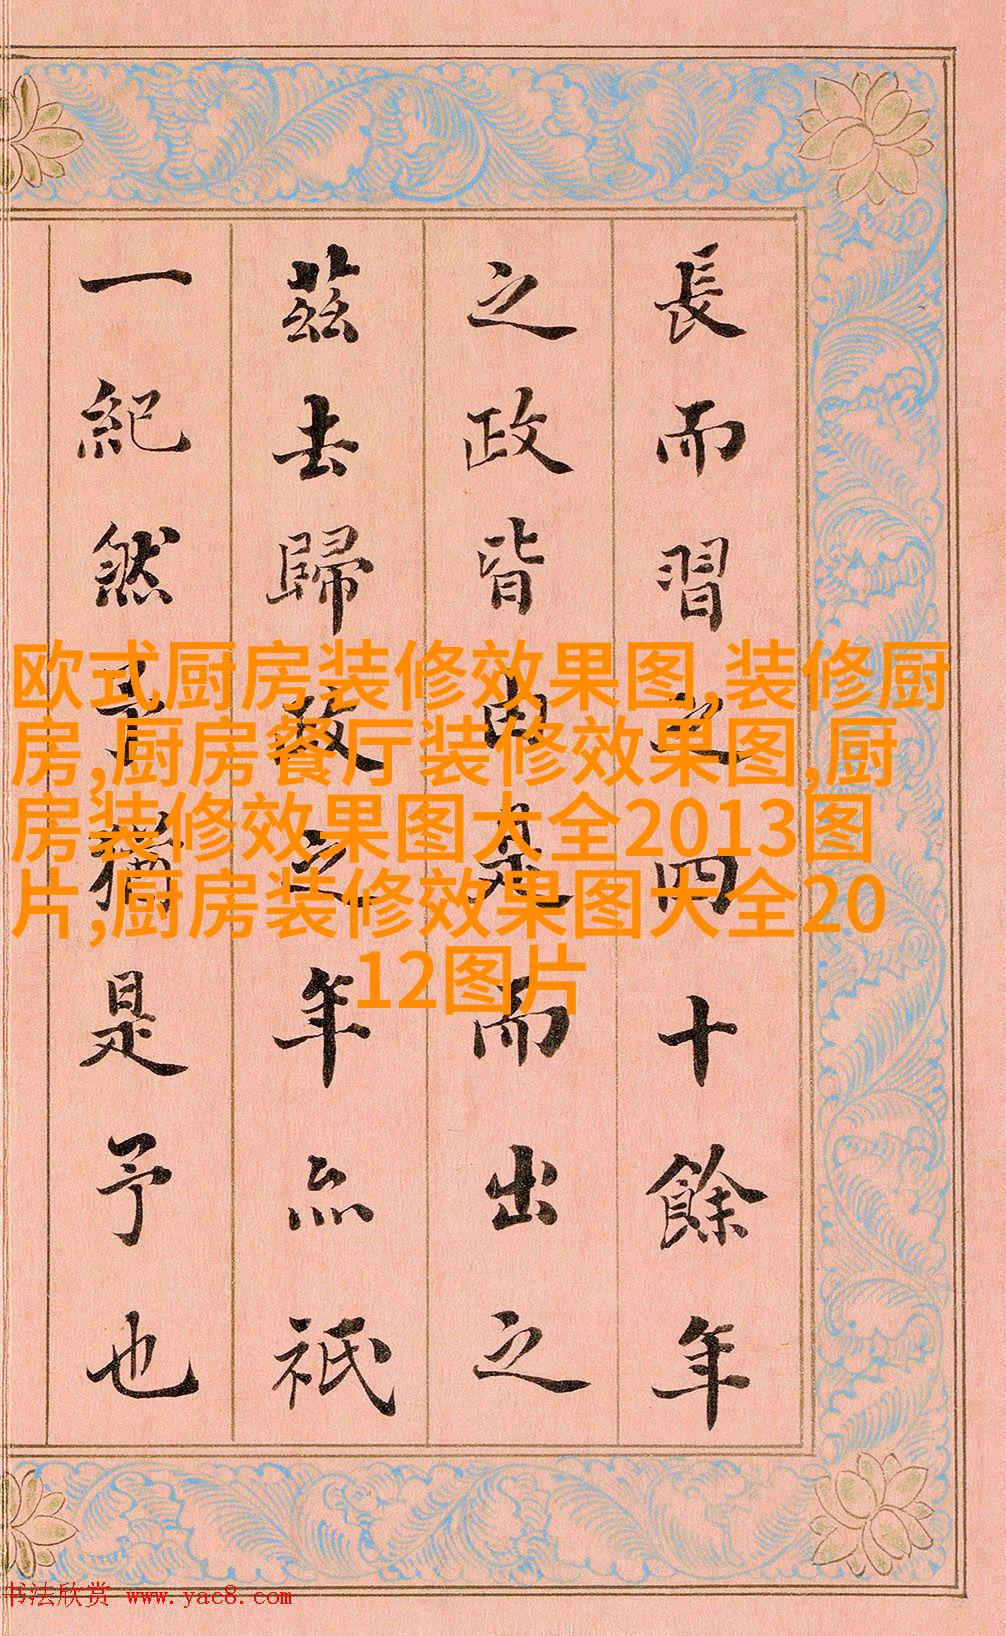 長而習之四十餘年
之政皆由是而出之
茲去歸政之年亦祇
一紀然予猶是予也
欧式厨房装修效果图,装修厨
房,厨房餐厅装修效果图,厨
房装修效果图大全2013图
片,厨房装修效果图大全20
12图片
书法欣赏 www.yac8.com